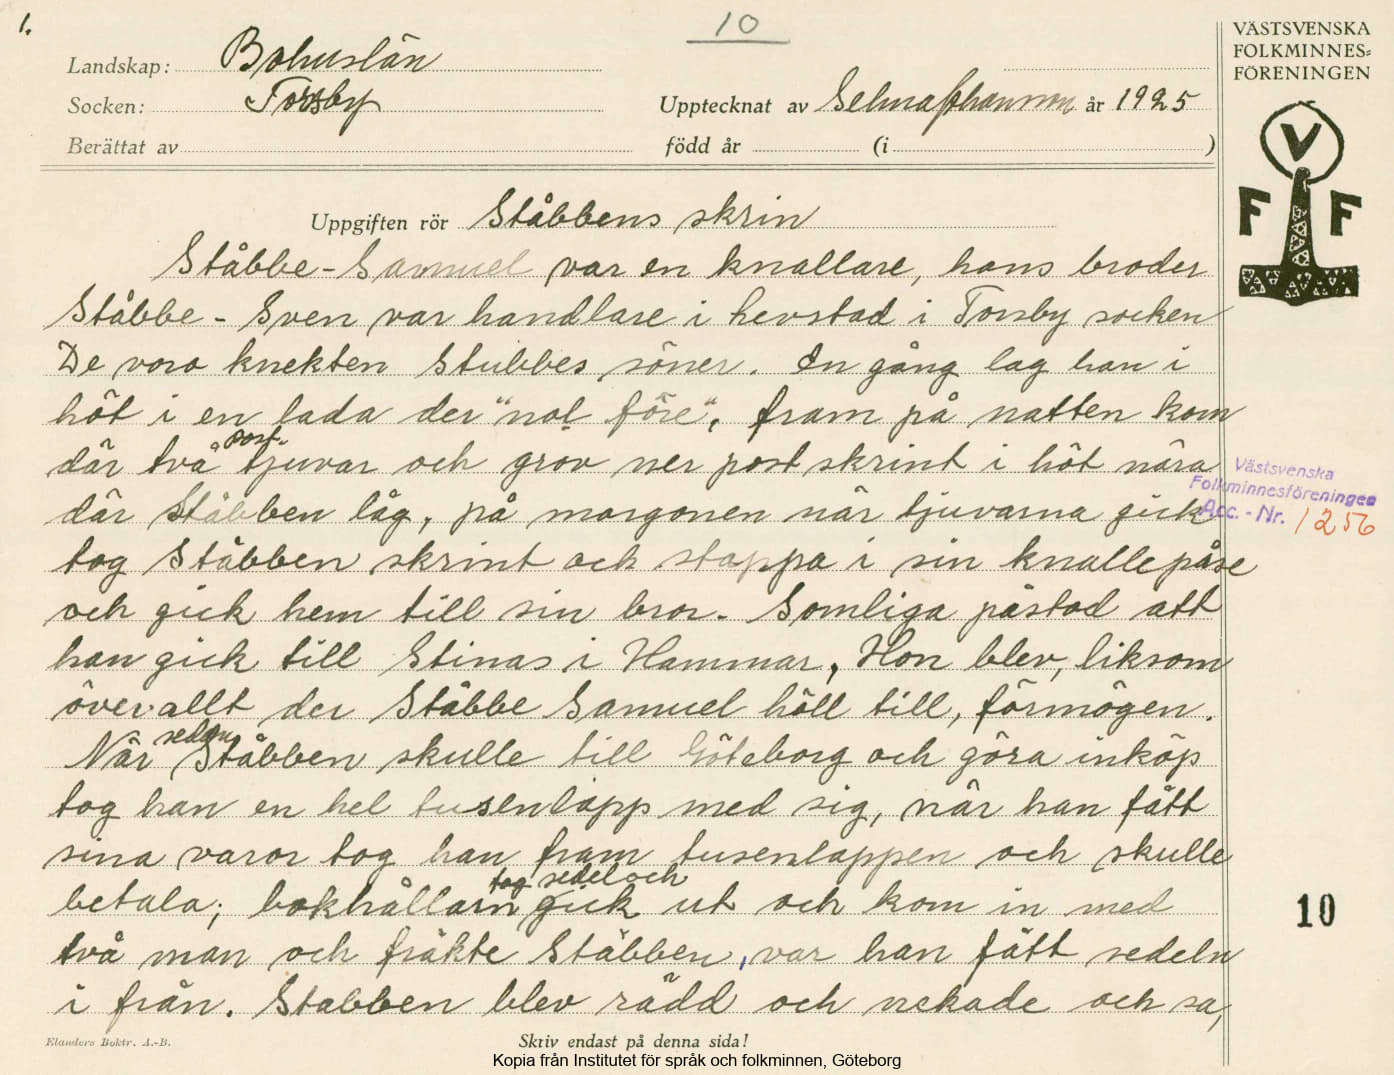 1.
10
VÄSTSVENSKA
FOLKMINNES=
FÖRENINGEN
V
F F
Landskap: Bohuslän
Socken: Torsby
Upptecknat av Selma Johansson år 1925
Berättat av
född år (i )
Uppgiften rör Ståbbens skrin
Ståbbe-Samuel var en knallare, hans broder
Ståbbe - Sven var handlare i hevstad i Torsby socken
De voro knekten Stubbes söner. En gång lag han i
höt i en lada der "nol före", fram på natten kom
där två post- tjuvar och grov ner post skrint i höt nära
där Ståbben låg, på morgonen när tjuvarna gick
tog Ståbben skrint och stoppa i sin knallepåse
och gick hem till sin bror. Somliga påstod att
han gick till Stinas i Hammar, Hon blev, liksom
överallt der Ståbbe Samuel höll till, förmögen.
När sedan Ståbben skulle till Göteborg och göra inköp
tog han en hel tusenlapp med sig, når han fått
sina varor tog han fram tusenlappen och skulle
betala; bokhållarn tog sedel och gick ut och kom in med
två man och fräkte Ståbben, var han fått sedeln
i från. Stabben blev rädd och nekade och sa,
Västsvenska
Folkminnesföreningen
Acc. - Nr. 1256
10
Elanders Boktr. A.-B.
Skriv endast på denna sida!
Kopia från Institutet för språk och folkminnen, Göteborg